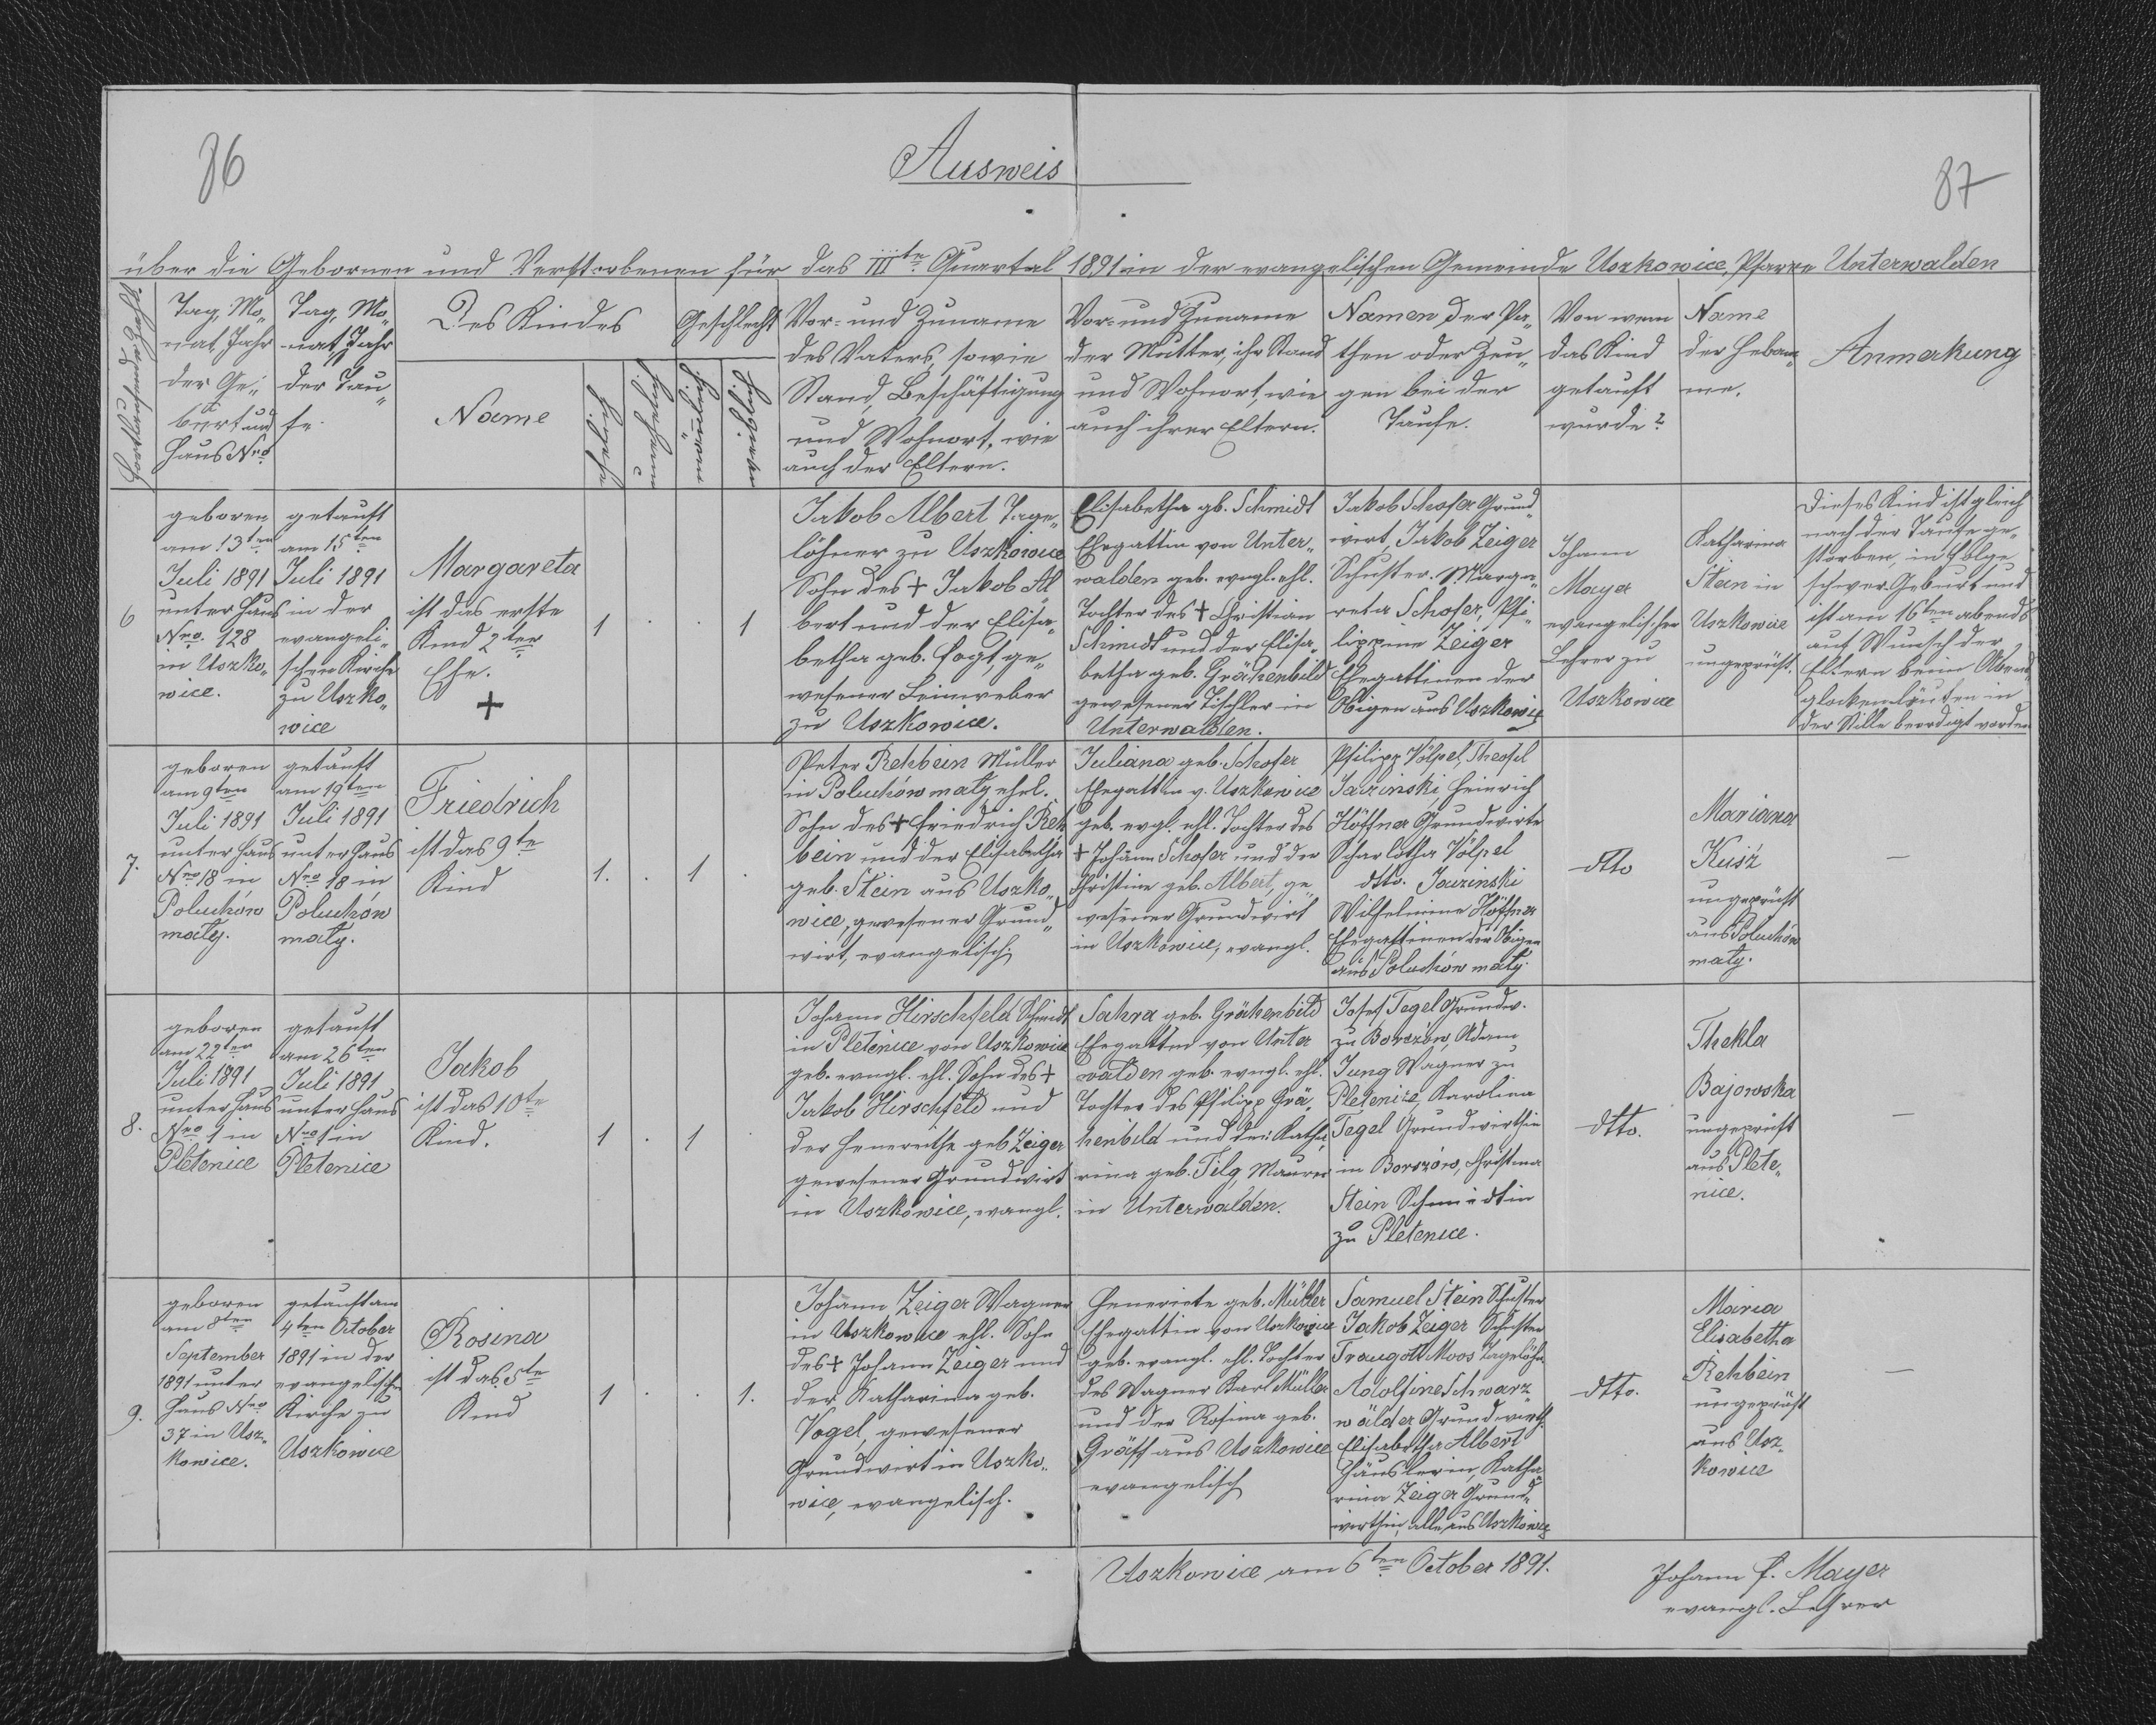 86
Ausweis
87
über die Gebornen und Verstorbenen für das III te Quartal 1891 in der evangelischen Gemeinde Uszkowice, Pfarre Unterwalden
Fortlaufende Zahl.
Tag, Mo„
nat, Jahr
der Ge„
burt und
Haus Nro
Tag, Mo„
nat, Jahr
der Tau„
fe.
Des Kindes
Name
ehelich
unehelich
Geschlecht
männlich
weiblich
Vor- und Zuname
des Vaters, sowie
Stand, Beschäftigung
und Wohnort, wie
auch der Eltern.
Vor- und Zuname
der Mutter, ihr Stand
und Wohnort, wie
auch ihrer Eltern.
Namen der Pa„
then oder Zeu„
gen bei der
Taufe.
Von wem
das Kind
getauft
wurde?
Name
der Hebam„
me.
Anmerkung
6
geboren
am 13ten
Juli 1891
unter Haus
Nro. 128
in Uszko„
wice.
getauft
am 15ten
Juli 1891
in der
evangeli„
schen Kirche
zu Uszko„
wice
Margareta
ist das erste
Kind 2ter
Ehe.
+
1
.
.
1
Jakob Albert Tage„
löhner zu Uszkowice
Sohn des + Jakob Al
bert und der Elisa„
betha geb. Vogt, ge„
wesener Leinweber
zu Uszkowice.
Elisabetha gb. Schmidt
Ehegattin von Unter„
walden geb. evngl. ehl.
Tochter des + Christian
Schmidt und der Elisa„
betha geb. Grähenbild
gewesener Tischler in
Unterwalden.
Jakob Schofer Grund„
wirt, Jakob Zeiger
Schuster. Marga„
reta Schofer, Phi„
lippine Zeiger
Ehegattinen der
Obigen aus Uszkowice
Johann
Mayer
evangelischer
Lehrer zu
Uszkowice
Katharina
Stein in
Uszkowice
ungeprüft.
Dieses Kind ist gleich
nach der Taufe ge„
storben, in Folge
schwer. Geburt und
ist am 16ten abends
auf Wunsch der
Eltern beim Abend
glockenläuten in
der Stille beerdigt worden
7.
geboren
am 9ten
Juli 1891
unter Haus
Nro 18 in
Poluchów
mały.
getauft
am 19ten
Juli 1891
unter Haus
Nro 18 in
Poluchów
mały.
Friedrich
ist das 9te
Kind
1.
.
1
.
Peter Rehbein Müller
in Poluchów mały, ehel.
Sohn des + Friedrich Reh
bein und der Elisabetha
geb. Stein aus Uszko„
wice, gewesener Grund„
wirt, evangelisch
Juliana geb. Schofer
Ehegattin v. Uszkowice
geb. evgl. ehl. Tochter des
+ Johann Schofer und der
Christine geb. Albert, ge„
wesener Grundwirt
in Uszkowice, evangl.
Philipp Völpel, Theofil
Jauzinski, Heinrich
Höffner Grundwirte
Scharlotha Völpel
dtto. Jauzinski
Wilhelmine Höffner
Ehegattinen der Obigen
aus Poluchów mały.
dtto
Mariana
Kuśź
ungeprüft
aus Poluchów
mały.
—
8.
geboren
am 22ten
Juli 1891
unter Haus
Nro 1 in
Pletenice
getauft
am 26ten
Juli 1891
unter Haus
Nro 1 in
Pletenice
Jakob
ist das 10te
Kind.
1
.
1
.
Johann Hirschfeld Schmidt
in Pletenice von Uszkowice
geb. evngl. ehl. Sohn des +
Jakob Hirschfeld und
der Henerethe geb. Zeiger
gewesener Grundwirt
in Uszkowice, evangl.
Sahra geb. Grähenbild
Ehegattin von Unter
walden geb. evngl. ehl.
Tochter des Philipp Grä„
henbild und der Katha„
rina geb. Filg, Maurer
in Unterwalden.
Josef Tegel Grundw.
zu Borszów, Adam
Jung Wagner zu
Pletenice, Karolina
Tegel Grundwirthin
in Borszów, Christina
Stein Schmiedtin
zu Pletenice.
dtto.
Thekla
Bajowska
ungeprüft
aus Plete„
nice.
—
9.
geboren
am 8ten
September
1891 unter
Haus Nro
37 in Usz„
kowice.
getauft am
4ten October
1891 in der
evangelischen
Kirche zu
Uszkowice
Rosina
ist das 5te
Kind
1
.
.
1.
Johann Zeiger Wagner
in Uszkowice ehl. Sohn
des + Johann Zeiger und
der Katharina geb.
Vogel, gewesener
Grundwirt in Uszko„
wice, evangelisch.
Heneriete geb. Müller
Ehegattin von Uszkowice
geb. evangl. ehl. Tochter
des Wagner Karl Müller
und der Rosina geb.
Gräff aus Uszkowice
evangelisch
Samuel Stein Schuster
Jakob Zeiger Schuster
Traugott Moos Tagelöhn.
Adolfine Schwarz„
wälder Grundwirth.
Elisabetha Albert
Häuslerin, Katha„
rina Zeiger Grund„
wirthin, alle aus Uszkowice
dtto.
Maria
Elisabetha
Rehbein
ungeprüft
aus Usz„
kowice
—
Uszkowice am 6ten October 1891.
Johann F. Mayer
evangl. Lehrer